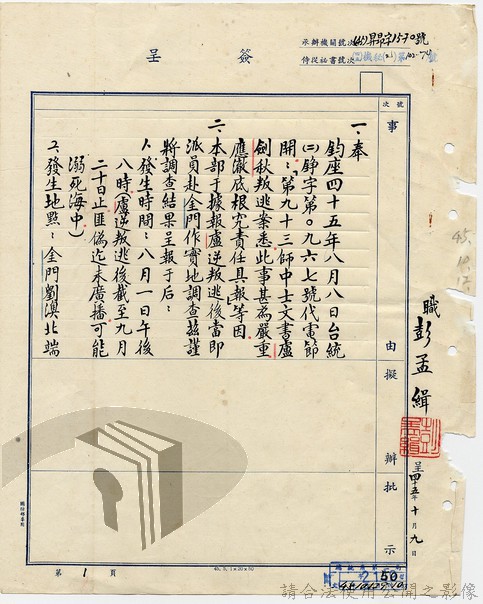 簽呈
承辦機關號次(45)昇昂字1570號
侍從祕書號次
次號
事
由
擬
辦
批
示
一、奉
鈞座四十五年八月八日台統
(二)錚字第○九六七號代電節
開：第九十三師中士文書盧
劍秋叛逃案悉此事甚為嚴重
應澈底根究責任具報等因
二、本部于據報盧逆叛逃後當即
派員赴金門作實地調查茲謹
將調查結果呈報于后：
1、發生時間：八月一日午後
八時（盧逆叛逃後截至九月
二十日止匪偽迄未廣播可能
溺死海中）
2、發生地點：金門劉澳北端
職彭孟緝
呈四十五年十月九日
45.10.12
第1頁
2150
請合法使用公開之影像